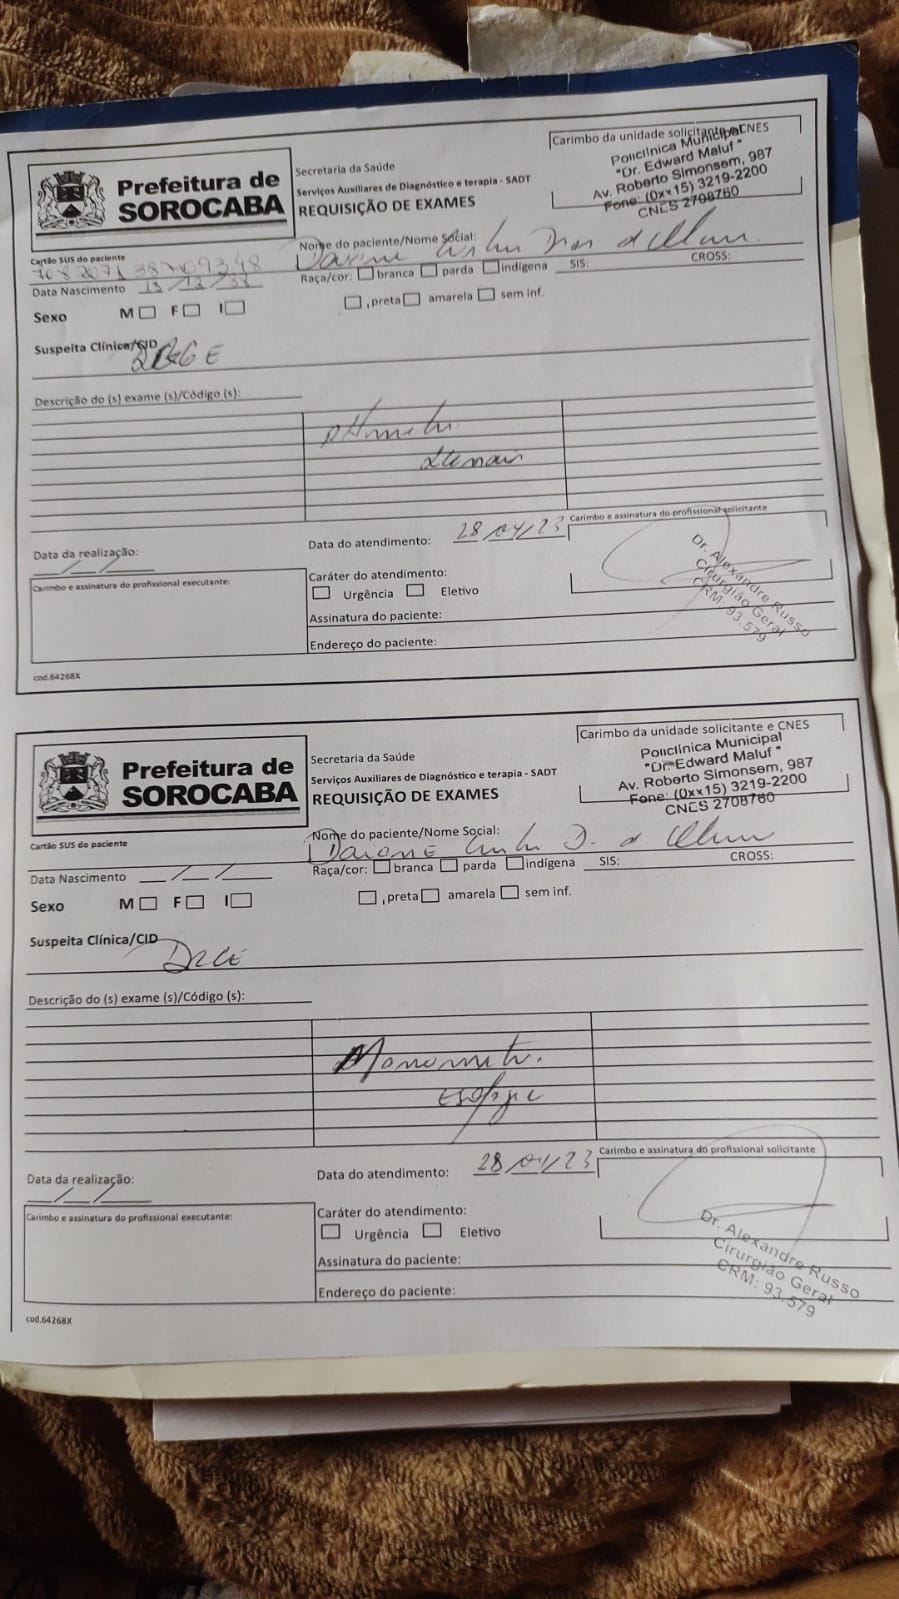 Carimbo da unidade solicitante e CNES
Policlínica Municipal
"Dr. Edward Maluf"
Av. Roberto Simonsem, 987
Fone: (0xx15) 3219-2200
CNES 2708760
Prefeitura de
SOROCABA
Secretaria da Saúde
Serviços Auxiliares de Diagnóstico e terapia - SADT
REQUISIÇÃO DE EXAMES
Nome do paciente/Nome Social:
Cartão SUS do paciente
Raça/cor: branca parda indígena SIS: CROSS:
Data Nascimento
, preta amarela sem inf.
Sexo M F I
Suspeita Clínica/CID
DRGE
Descrição do (s) exame (s)/Código (s):
Data do atendimento: 28/04/23
Carimbo e assinatura do profissional solicitante
Dr. Alexandre Russo
Cirurgião Geral
CRM: 93.579
Data da realização: __/__/__
Carimbo e assinatura do profissional executante:
Caráter do atendimento:
Urgência Eletivo
Assinatura do paciente:
Endereço do paciente:
cod.64268X
Carimbo da unidade solicitante e CNES
Policlínica Municipal
"Dr. Edward Maluf"
Av. Roberto Simonsem, 987
Fone: (0xx15) 3219-2200
CNES 2708760
Prefeitura de
SOROCABA
Secretaria da Saúde
Serviços Auxiliares de Diagnóstico e terapia - SADT
REQUISIÇÃO DE EXAMES
Nome do paciente/Nome Social:
Daiane
Cartão SUS do paciente
Raça/cor: branca parda indígena SIS: CROSS:
Data Nascimento __/__/__
, preta amarela sem inf.
Sexo M F I
Suspeita Clínica/CID
DRGE
Descrição do (s) exame (s)/Código (s):
Data do atendimento: 28/04/23
Carimbo e assinatura do profissional solicitante
Dr. Alexandre Russo
Cirurgião Geral
CRM: 93.579
Data da realização: __/__/__
Carimbo e assinatura do profissional executante:
Caráter do atendimento:
Urgência Eletivo
Assinatura do paciente:
Endereço do paciente:
cod.64268X